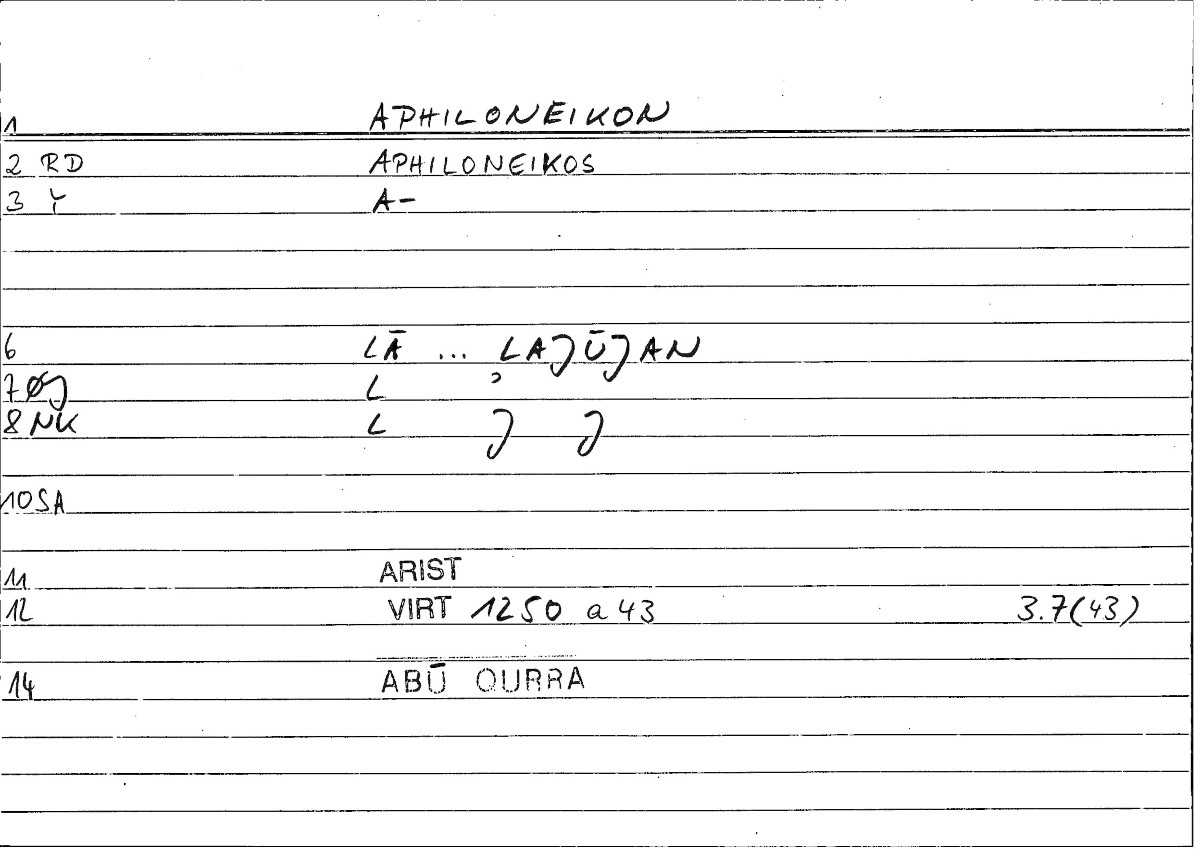 1 APHILONEIKON
2 RD APHILONEIKOS
3 Ỹ A-
6 LĀ ... LAJŪJAN
7 ØJ L ʾ
8 NK L J J
10 SA
11 ARIST
12 VIRT 1250 a 43 3.7(43)
14 ABŪ QURRA